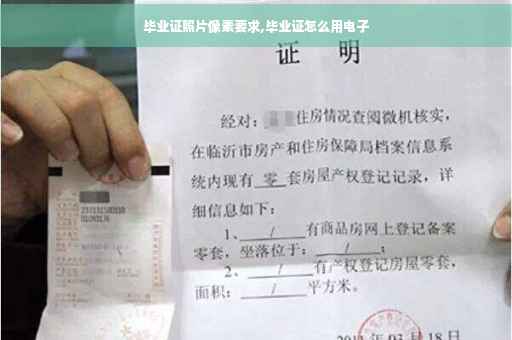 毕业证照片像素要求,毕业证怎么用电子
证 明
经对：住房情况查阅微机核实，
在临沂市房产和住房保障局档案信息系
统内现有 零 套房屋产权登记记录，详
细信息如下：
1、 / 有商品房网上登记备案
零套，坐落位于： / ；
2、 / 有产权登记房屋零套，
面积： / 平方米。
年 03 月 18 日